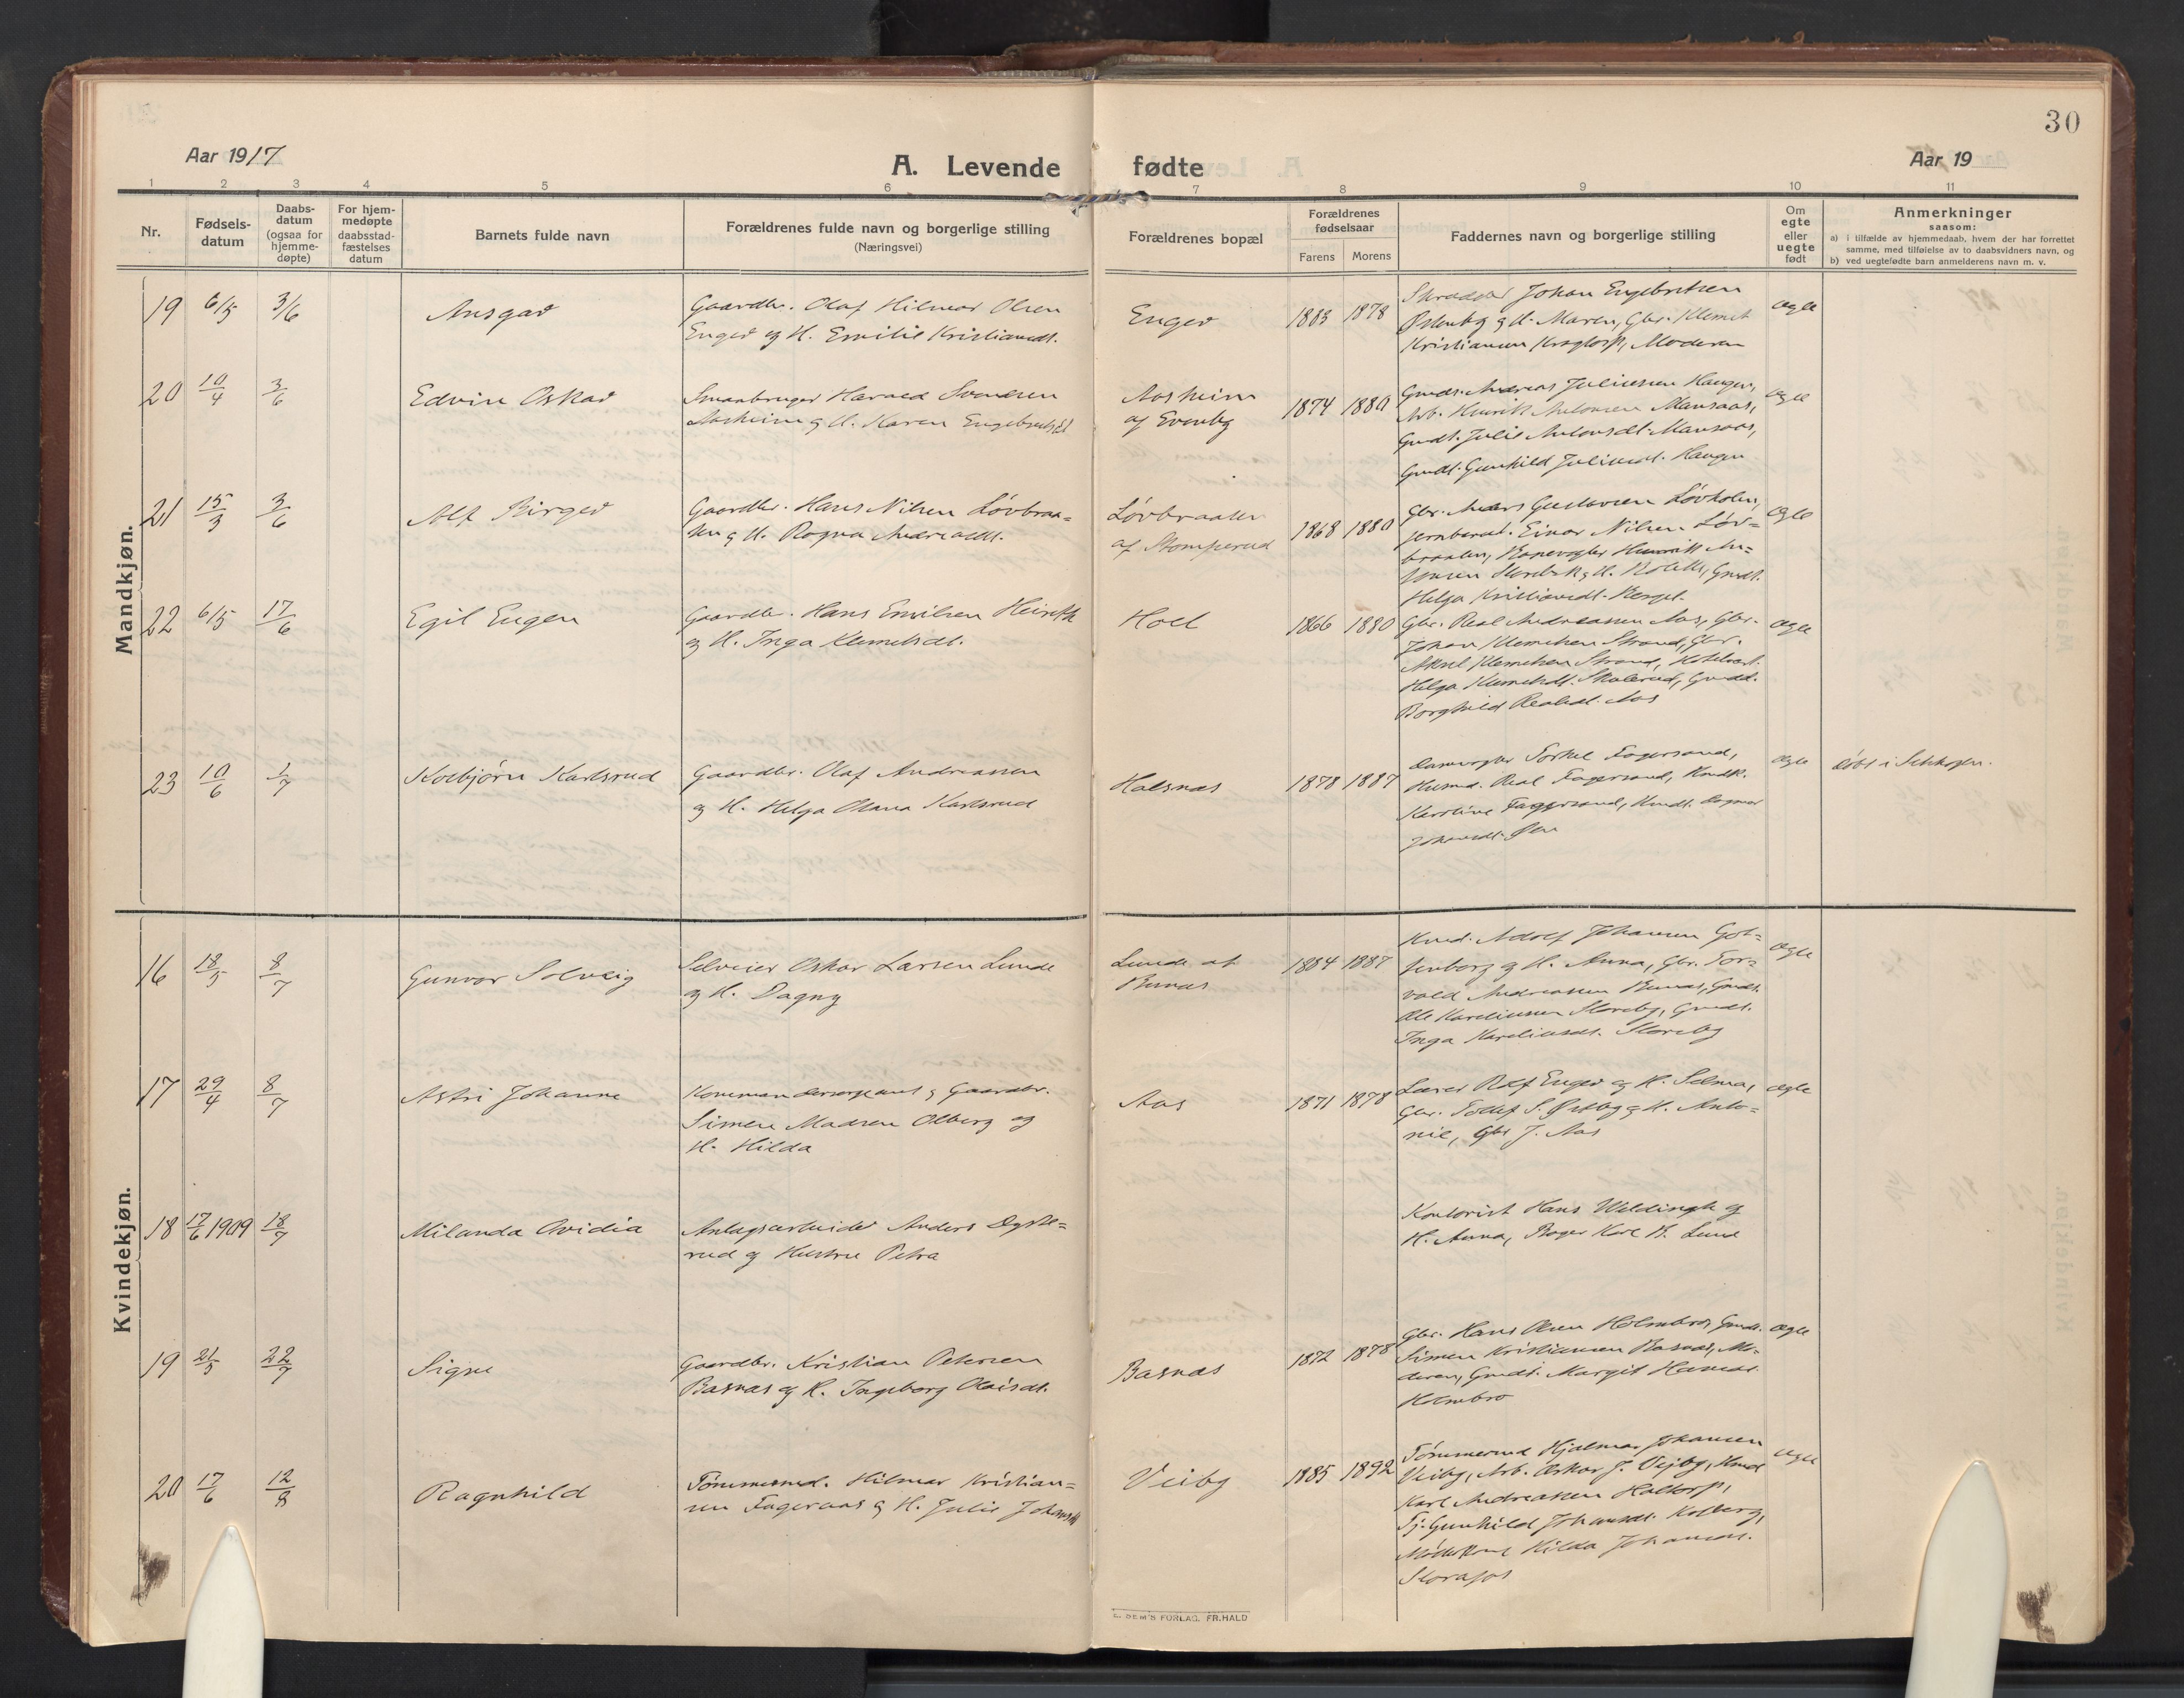 30
Aar 1917
A. Levende fødte
Aar 19
1 2 3 4 5 6 7 8 9 10 11
Nr.
Fødsels-
datum
Daabs-
datum
(ogsaa for
hjemme-
døpte)
For hjem-
medøpte
daabsstad-
fæstelses
datum
Barnets fulde navn
Forældrenes fulde navn og borgerlige stilling
(Næringsvei)
Forældrenes bopæl
Forældrenes
fødselsaar
Farens Morens
Faddernes navn og borgerlige stilling
Om
egte
eller
uegte
født
Anmerkninger
saasom:
a) i tilfælde av hjemmedaab, hvem der har forrettet
samme, med tilføielse av to daabsvidners navn, og
b) ved uegtefødte barn anmelderens navn m. v.
Mandkjøn.
19 6/5 3/6 Ansgar
Gaardbr. Olaf Hilmar Olsen
Enger og H. Emilie Kristiansdt.
Enger 1883 1878
Skrædder Johan Engebretsen
Østenby og H. Maren, Gbr. Klemet
Kristiansen Kragtorp, Moderen
ægte
20 10/4 3/6 Edvin Oskar
Smaabruger Harald Svendsen
Aasheim og H. Karen Engebretsdt
Aasheim
af Evenby
1874 1880
Gmds. Andreas Juliussen Haugen,
Arb. Henrik Antonsen Mansaas,
Gmdt. Julie Antonsdt. Mansaas,
Gmdt. Gunhild Juliusdt. Haugen
ægte
21 15/3 3/6 Alf Birger
Gaardbr. Hans Nilsen Løvbraa=
ten og H. Ragna Andreasdt.
Løvbraaten
af Stomperud
1868 1880
Gbr. Anders Gustavsen Løvholen,
Jernbanat. Einar Nilsen Løv=
braaten, Banevogter Henrik An=
Helga Kristiansdt. Berget
ægte
22 6/5 17/6 Egil Eugen
Gaardbr. Hans Emilsen
og H. Inga Klemetsdt.
Hoel 1866 1880
Gbr. Real Andreassen Aas, Gbr.
Johan Klemetsen Strand, Gbr.
Aksel Klemetsen Strand,
Helga Klemetsdt. Skolerud, Gmdt.
Borghild Realsdt. Aas
ægte
23 10/6 1/7 Kolbjørn Karlsrud
Gaardbr. Olaf Andreassen
og H. Helga Oliana Karlsrud
Halsnæs 1878 1887
Torkel Fagersand,
Husmd. Real Fagersand,
Karoline Fagersand, Dagmar
ægte
døbt i
Kvindekjøn.
16 18/5 8/7 Gunvor Solveig
Selveier Oskar Larsen Lunde
og H. Dagny
Lunde af
1884 1887
Adolf Johansen Got=
tenborg og H. Anna, Gbr. Tor=
vald Andreassen Gmds.
Ole Kareliussen Storeby, Gmdt.
Inga Kareliusdt. Storeby
ægte
17 29/4 8/7 Astri Johanne
Kommandersergeant og Gaardbr.
Simen Madsen Olberg og
H. Hilda
Aas 1871 1878
Lærer Rolf Enger og H. Selma,
Gbr. Tollef S. Østby og H. Anto=
nie, Gbr J. Aas
ægte
18 17/6 1909 18/7 Milanda Ovidia
Anlægsarbeider Anders Dyste=
rud og Hustru Petra
Kontorist Hans Weldingh og
H. Anna, Bager Karl B. Lund
19 21/5 22/7 Signe
Gaardbr. Kristian Petersen
Basnæs og H. Ingeborg Olaisdt.
Basnæs 1872 1878
Gbr. Hans Olsen Holmbro, Gmds.
Simen Kristiansen Basnæs, Mo=
deren, Gmdt. Margit Hansdt.
Holmbro
ægte
20 17/6 12/8 Ragnhild
Tømmermd. Hilmar Kristian=
sen Fageraas og H. Julie Johansdt
Veiby 1885 1892
Tømmermd Hjalmar Johansen
Veiby, Arb. Oskar J. Vejby,
Karl Andreassen Haltorp,
Tj. Gunhild Johansdt. Kolberg,
Hilda Johansdt.
ægte
E. SEM'S FORLAG. FR. HALD